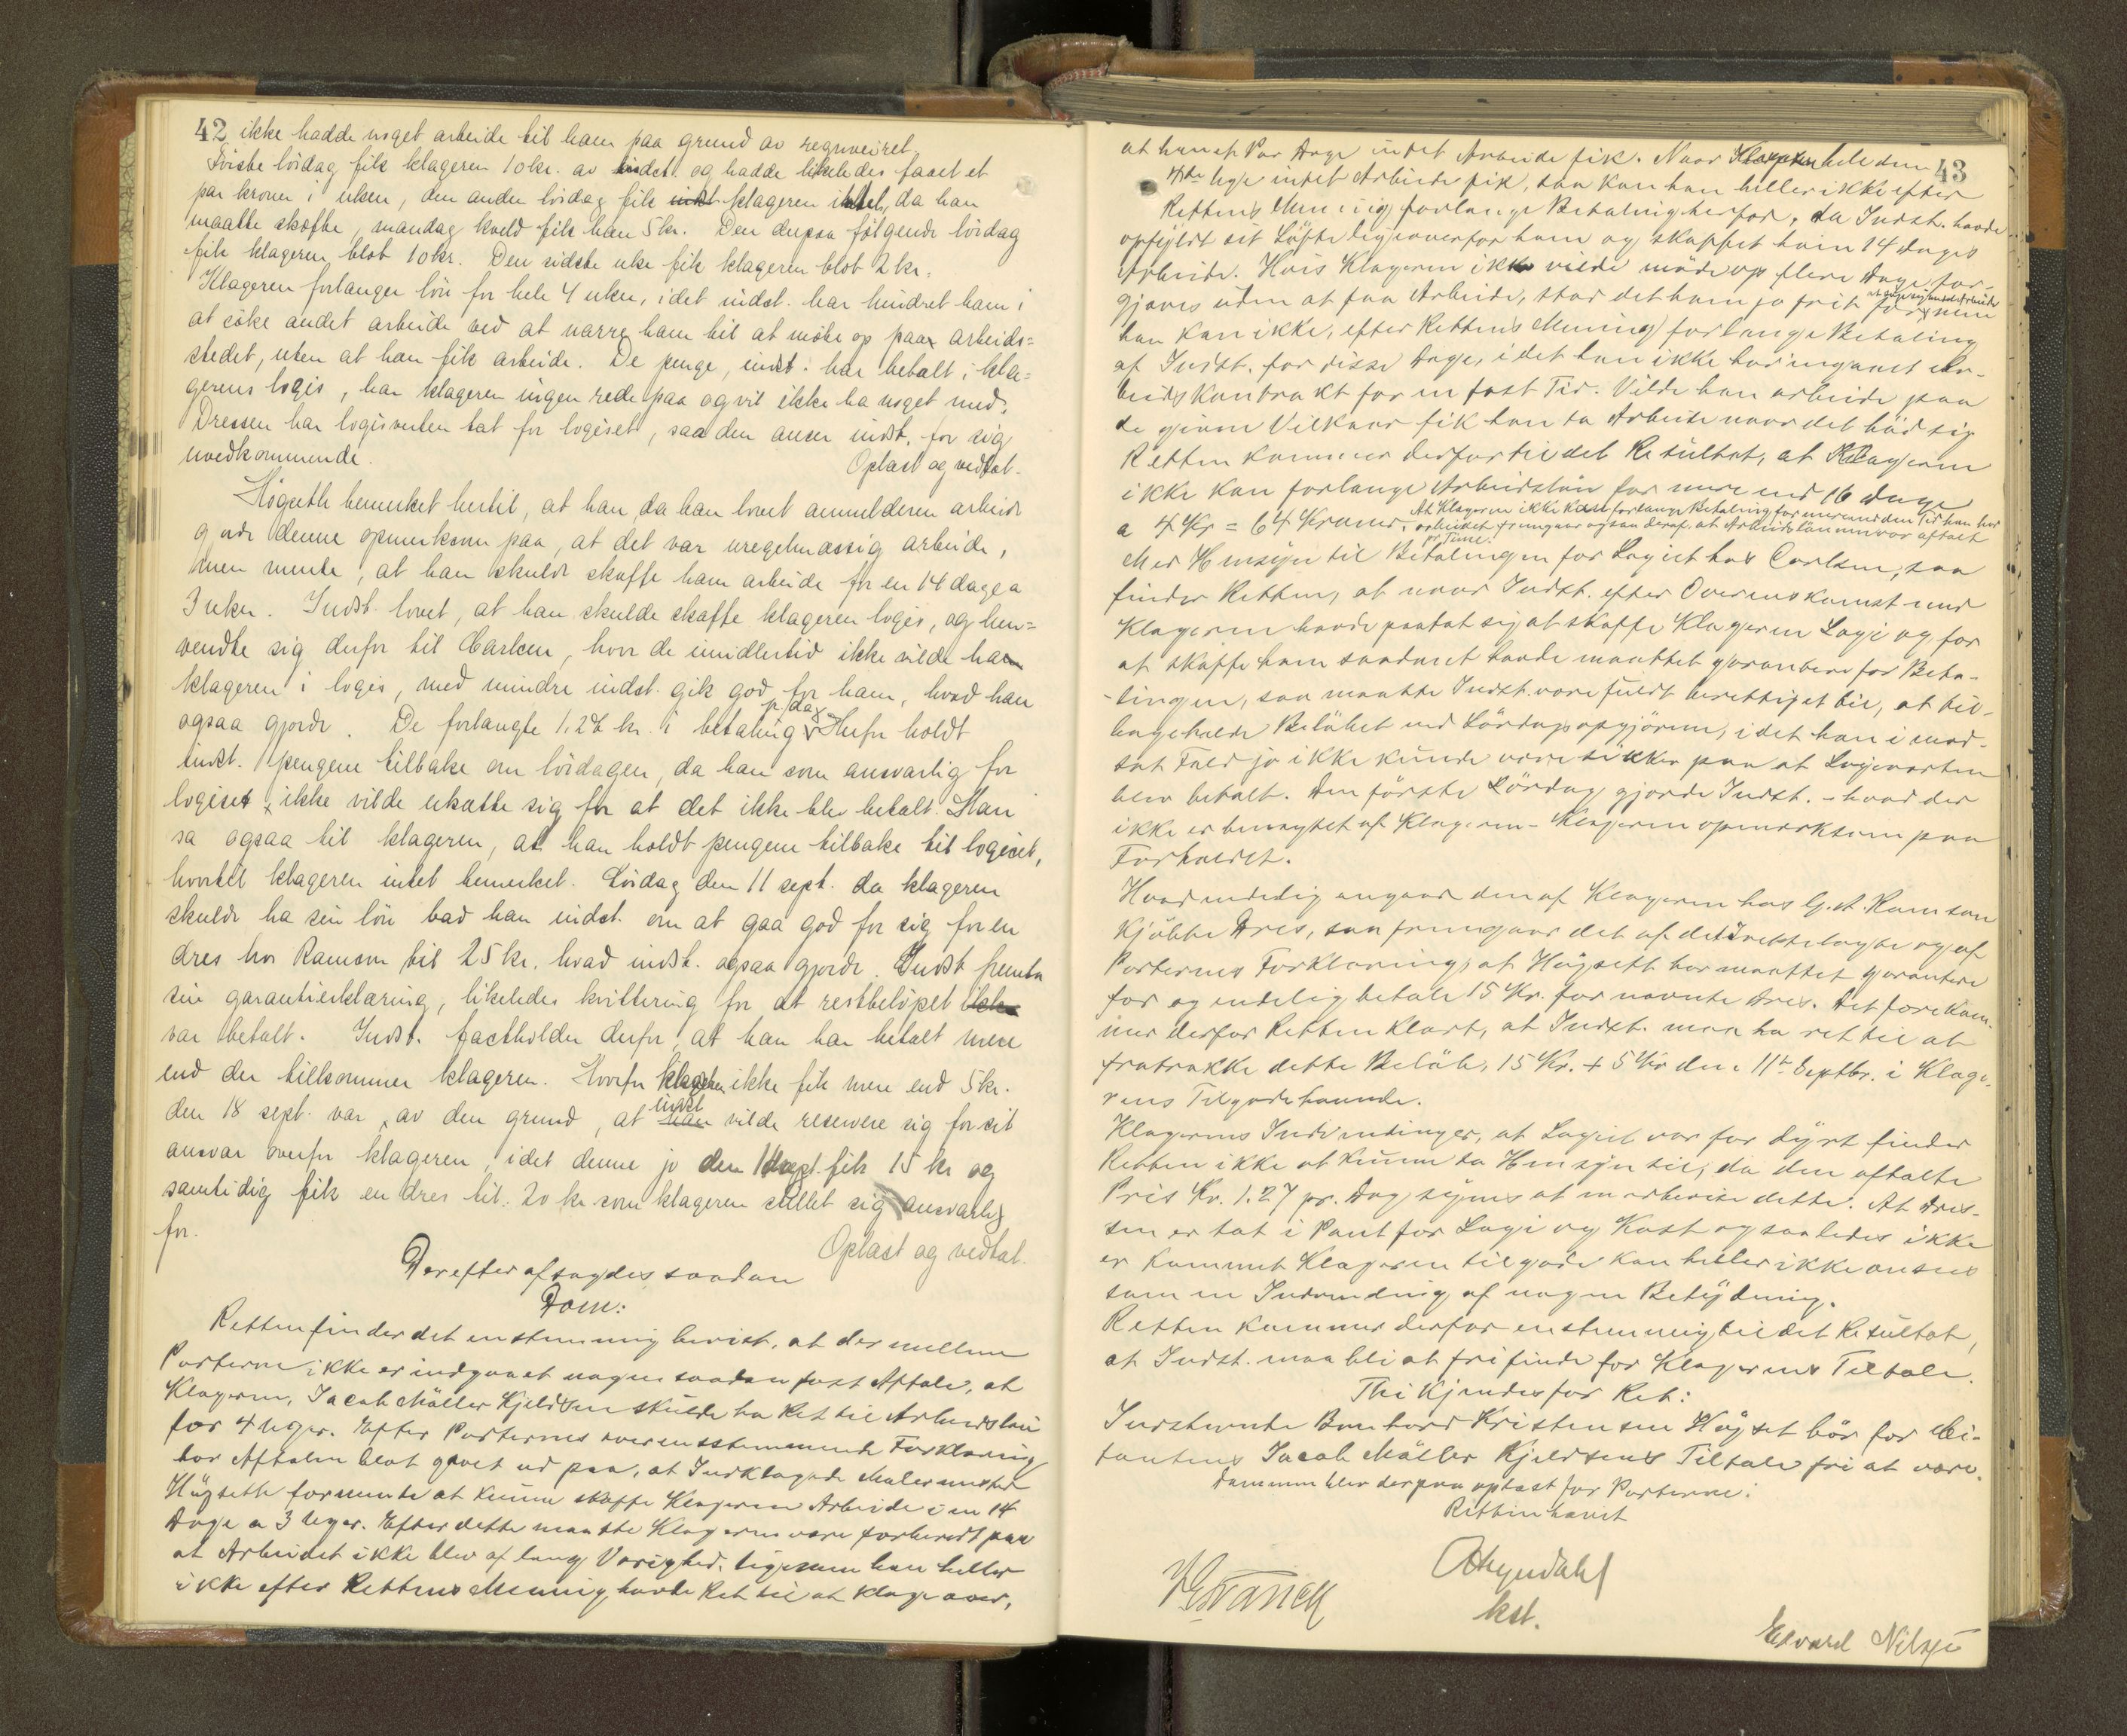 42 ikke hadde noget arbeide til ham paa grund av regnveiret.
Første lördag fik klageren 10 kr. av indst. og hadde likeledes faaet et
par kroner i uken, den anden lördag fik klageren intet, da han
maatte skofte, mandag kveld fik han 5 kr. Den derpaa følgende lördag
fik klageren blot 10 kr. Den sidste uke fik klageren blot 2 kr.
Klageren forlanger lön for hele 4 uker, idet indst. har hindret ham i
at söke andet arbeide ved at narre ham til at möte op paa arbeids=
stedet, uten at han fik arbeide. De penge, indst. har betalt i kla=
gerens logis, har klageren ingen rede paa og vil ikke ha noget med.
Dressen har logisverten tat for logiset, saa den anser indst. for sig
uvedkommende.
Oplæst og vedtat.
Högseth bemerket hertil, at han, da han lovet anmelderen arbeide
gjorde denne opmerksom paa, at det var uregelmæssig arbeide,
men mente, at han skulde skaffe ham arbeide for en 14 dage a
3 uker. Indst. lovet, at han skulde skaffe klageren logis, og hen=
vendte sig derfor til Carlsen, hvor de imidlertid ikke vilde ha
klageren i logis, med mindre indst. gik god for ham, hvad han
ogsaa gjorde. De forlangte 1.28 kr. i betaling pr dag. Herfor holdt
indst. pengene tilbake om lördagen, da han som ansvarlig for
logiset ikke vilde utsætte sig for at det ikke blev betalt. Han
sa ogsaa til klageren, at han holdt pengene tilbake til logiset,
hvortil klageren intet bemerket. Lördag den 11 sept. da klageren
skulde ha sin lön bad han indst. om at gaa god for sig for en
dres hos Ramson til 25 kr. hvad indst. ogsaa gjorde. Indst fremla
sin garantierklæring, likeledes kvittering for at restbelöpet
var betalt. Indst. fastholder derfor, at han har betalt mere
end der tilkommer klageren. Hvorfor klageren ikke fik mere end 5 kr.
den 18 sept. var av den grund, at indst vilde reservere sig for sit
ansvar overfor klageren, idet denne jo den 11 sept. fik 15 kr og
samtidig fik en dres til 20 kr som klageren stillet sig ansvarlig
for.
Oplæst og vedtat.
Derefter afsagdes saadan
Dom:
Retten finder det enstemmig bevist, at der mellem
Parterne ikke er indgaaet nogen saadan fast Aftale, at
Klageren, Jacob Möller Kjeldsen skulde ha Ret til Arbeidslön
for 4 Uger. Efter Parternes overensstemmende Forklaring
har Aftalen blot gaaet ud paa, at Indklagede Malermester
Högseth formente at kunne skaffe Klageren Arbeide i en 14
Dage a 3 Uger. Efter dette maatte Klageren være forberedt paa
at Arbeidet ikke blev af lang Varighed, ligesom han heller
ikke efter Rettens Mening havde Ret til at klage over,
43
at han et Par Dage intet Arbeide fik. Naar Klageren hele den
4de Uge intet Arbeide fik, saa kan han heller ikke efter
Rettens Mening forlange Betaling herfor, da Indst. havde
opfyldt sit Löfte ligeoverfor ham og skaffet ham 14 Dages
Arbeide. Hvis Klageren ikke vilde möde op flere Dage for-
gjæves uden at faa Arbeide, stod det ham jo frit for men
han kan ikke, efter Rettens Mening forlange Betaling
af Indst. for disse Dage, idet han ikke har indgaaet Ar-
beidskontrakt for en fast Tid. Vilde han arbeide paa
de givne Vilkaar fik han ta Arbeide naar det böd sig
Retten kommer derfor til det Resultat, at Klageren
ikke kan forlange Arbeidslön for mere end 16 Dage
a 4 Kr = 64 Kroner. At Klageren ikke kan forlange Betaling for mere end den Tid han har
arbeidet fremgaar ogsaa deraf, at Arbeidslönnen var aftalt
pr Time.
Med Hensyn til Betalingen for Logiet hos Carlsen, saa
finder Retten, at naar Indst. efter Overenskomst med
Klageren havde paatat sig at skaffe Klageren Logi og for
at skaffe ham saadant havde maattet garantere for Beta-
lingen, saa maatte Indst. være fuldt berettiget til, at til-
bageholde Belöbet ved Lördagsopgjörene, idet han i mod-
sat Fald jo ikke kunde være sikker paa at Logiverten
blev betalt. Den förste Lördag gjorde Indst. - hvad der
ikke er benegtet af Klageren - Klageren opmerksom paa
Forholdet.
Hvad endelig angaar den af Klageren hos G. A. Ramson
Kjöbte Dres, saa fremgaar det af det fremlagte og af
Parternes Forklaring, at Högseth har maattet garantere
for og endelig betale 15 Kr. for nævnte Dres. Det forekom-
mer derfor Retten klart, at Indst. maa ha ret til at
fratrække dette Belöb, 15 Kr. + 5 Kr den 11te Septbr. i Klage-
rens Tilgodehavende.
Klagerens Indvendinger, at Logiet var for dyrt finder
Retten ikke at kunne ta Hensyn til, da den aftalte
Pris Kr. 1.27 pr. Dag synes at modbevise dette. At Dres-
sen er tat i Pant for Logi og Kost og saaledes ikke
er kommet Klageren tilgode kan heller ikke ansees
som en Indvending af nogen Betydning.
Retten kommer derfor enstemmig til det Resultat,
at Indst. maa bli at frifinde for Klagerens Tiltale.
Thi kjendes for Ret:
Indstevnte Bernhard Kristensen Högset bör for Ci-
tantens Jacob Möller Kjeldsens Tiltale fri at være.
Dommen blev derpaa oplæst for Parterne.
Retten hævet
kst.
Edvard